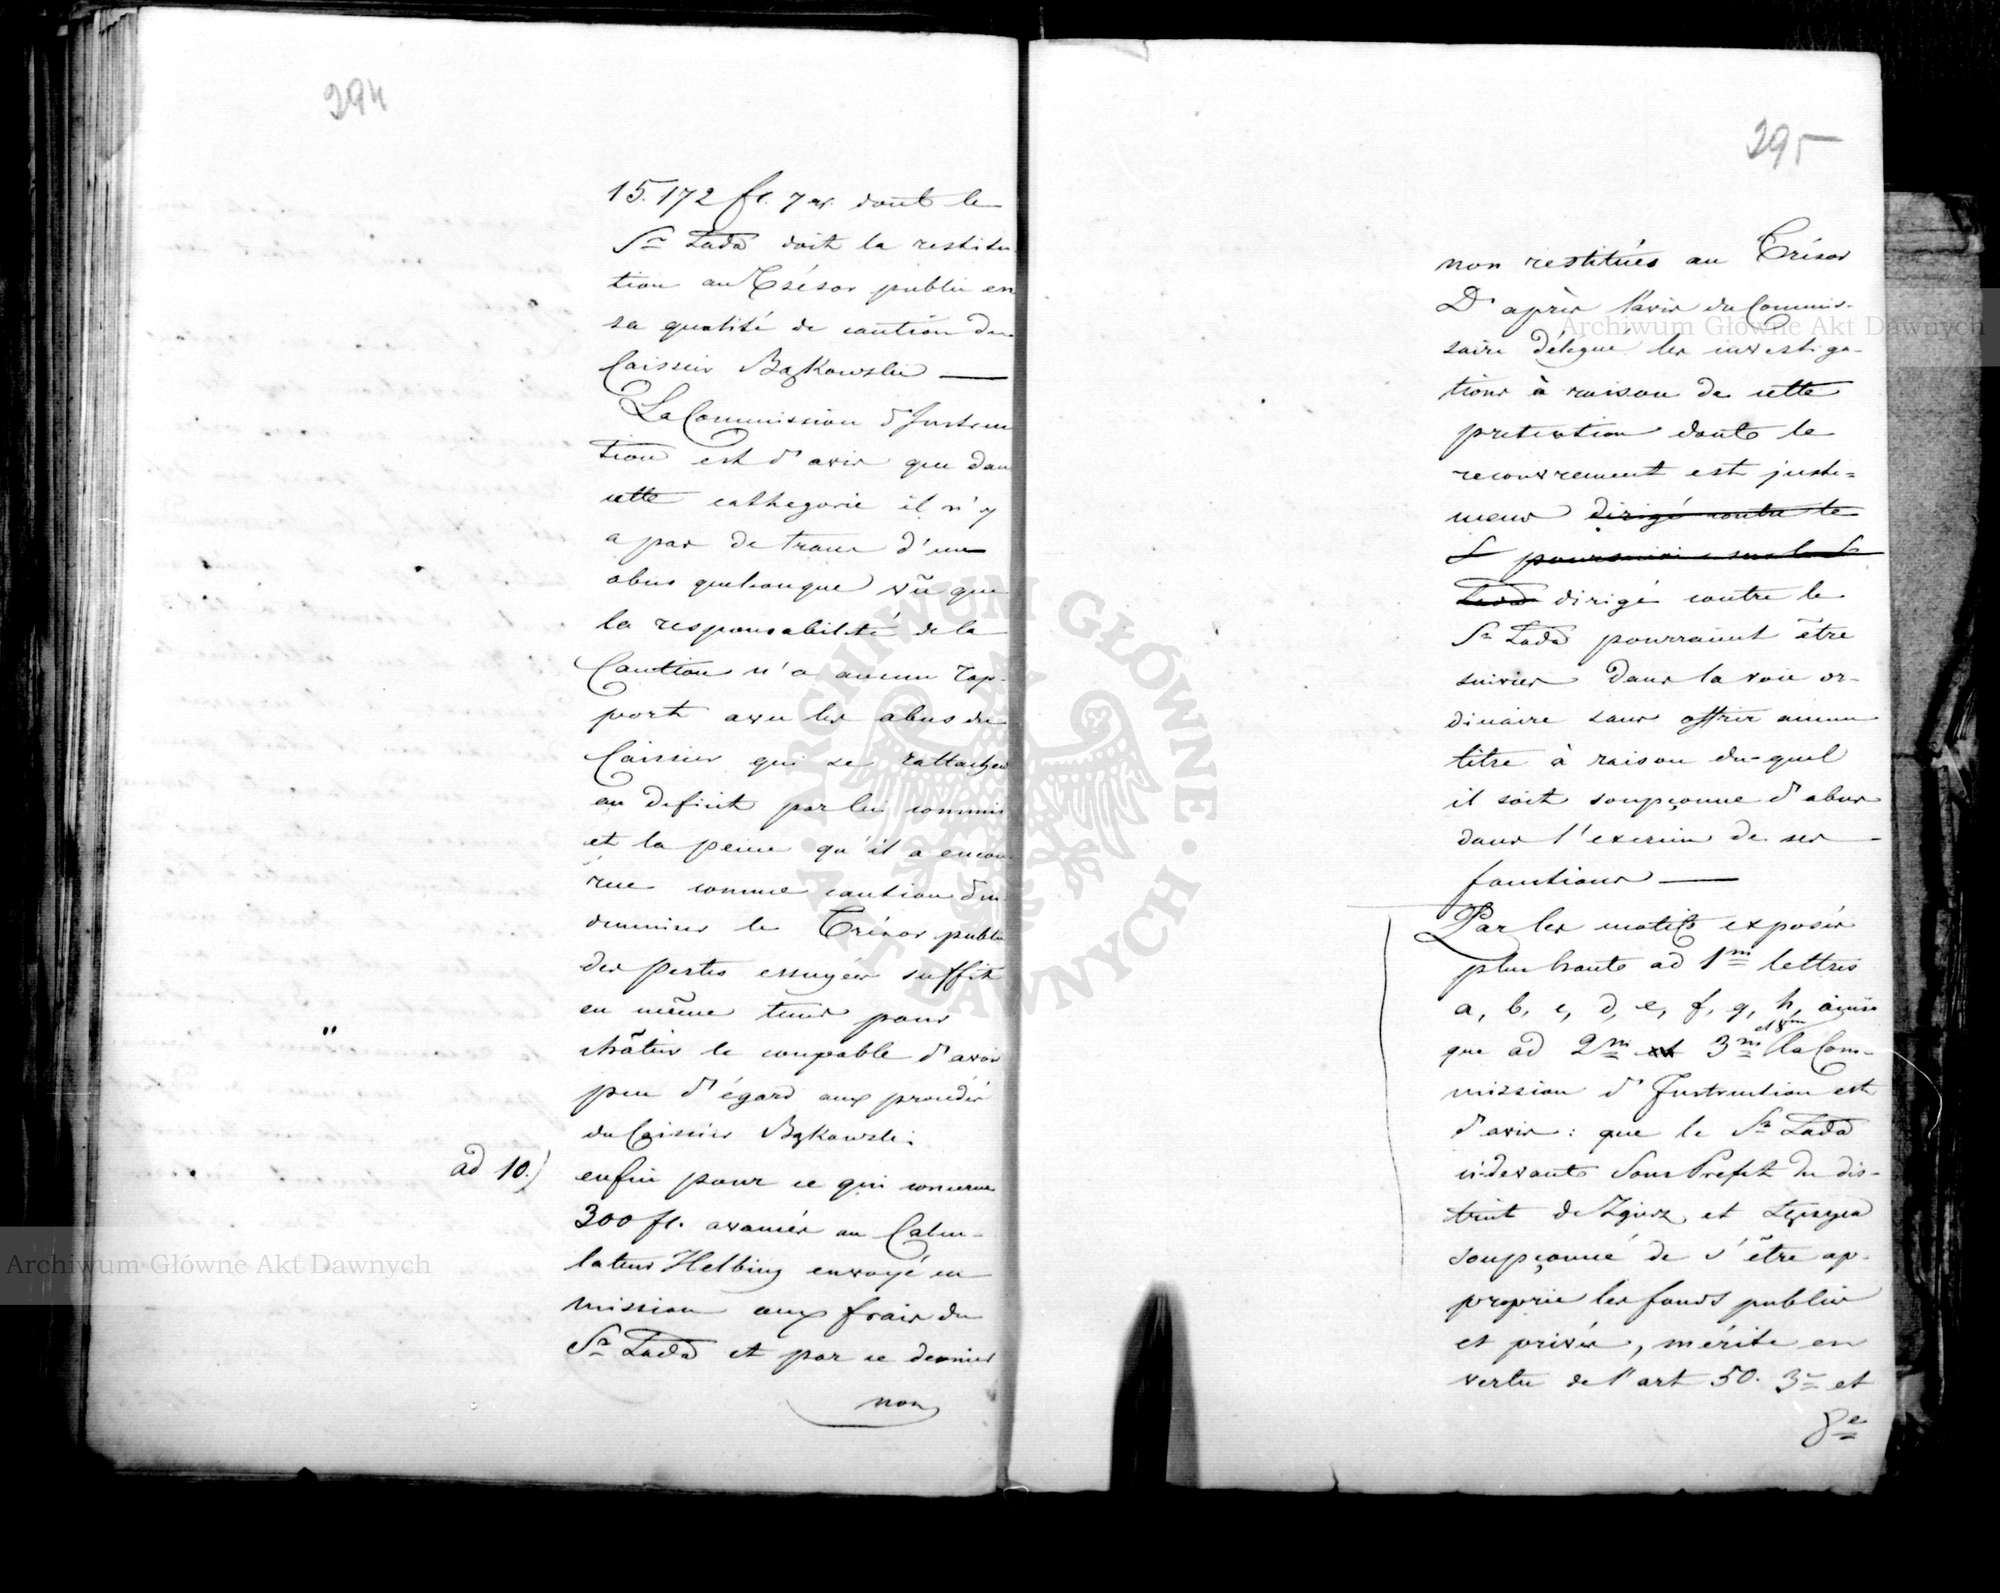 294
15.172 fl. 7 gr. dont le
Sr Lada doit la restitu
tion au Trésor public en
sa qualité de caution du
Caissier Bąkowski —
La Commission d'Instruc
tion est d'avis que dans
cette cathegorie il n'y
a pas de traces d'un
abus quelconque vû que
la responsabilité de la
Caution n'a aucun rap-
port avec les abus du
Caissier qui se rattachent
au deficit par lui commis
et la peine qu'il a encou
rue comme caution d'in
demniser le Trésor public
des pertes essuyées suffit
en même tems pour
châtier le coupable d'avoir
peu d'égard aux procédés
du Caissier Bąkowski.
ad 10.) enfin pour ce qui concerne
300 fl. avancés au Calcu-
lateur Helbing envoyé en
mission aux frais du
Sr Lada et par ce dernier
non
295
non restitués au Trésor
D'après l'avis du Commis-
saire délegué les investiga-
tions à raison de cette
pretention dont le
recouvrement est juste-
ment dirigé contre le
S poursuivie sur le S
Lada dirigé contre le
Sr Lada pourraient être
suivies dans la voie or-
dinaire sans offrir aucun
titre à raison du-quel
il soit soupçonne d'abus
dans l'exercice de ses
fonctions —
Par les motifs exposés
plus hauts ad 1mm lettres
a, b, c, d, e, f, g, h, ainsi
que ad 2m et 3m et 8m la Com-
mission d'Instruction est
d'avis: que le Sr Lada
ci-devant Sous Prefet du dis-
trict de Zgierz et Łęczyca
soupçonné de s'être ap-
proprié les fonds publics
et privés, mérite en
vertu de l'art 50. 3e et
8e
Archiwum Główne Akt Dawnych
Archiwum Główne Akt Dawnych
ARCHIWUM GŁÓWNE AKT DAWNYCH